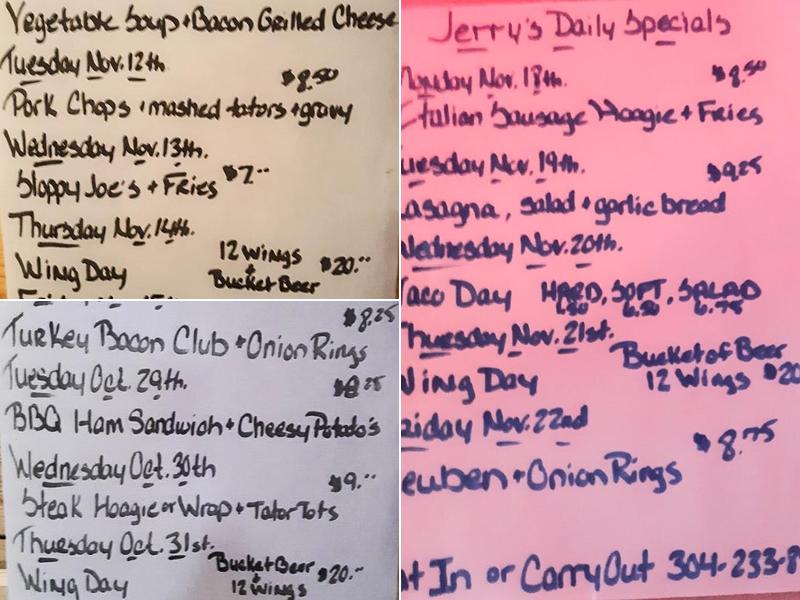 Vegetable Soup + Bacon Grilled Cheese
Tuesday Nov. 12th
$8.50
Pork Chops, mashed tators + gravy
Wednesday Nov. 13th.
Sloppy Joe's + Fries $7.--
Thursday Nov. 14th.
Wing Day 12 Wings + Bucket Beer $20.--
$8.25
Turkey Bacon Club + Onion Rings
Tuesday Oct. 29th.
BBQ Ham Sandwich + Cheesy Potato's
Wednesday Oct. 30th
$9.--
Steak Hoagie or Wrap + Tator Tots
Thursday Oct. 31st.
Wing Day Bucket Beer + 12 Wings $20.--
Jerry's Daily Specials
Monday Nov. 18th. $8.50
Italian Sausage Hoagie + Fries
uesday Nov. 19th. $9.25
asagna, salad + garlic bread
Wednesday Nov. 20th.
aco Day HARD, SOFT, SALAD
6.50 6.75
Thursday Nov. 21st.
Bucket of Beer
Wing Day 12 Wings $20
riday Nov. 22nd
$8.75
euben + Onion Rings
at In or Carry Out 304-233-8